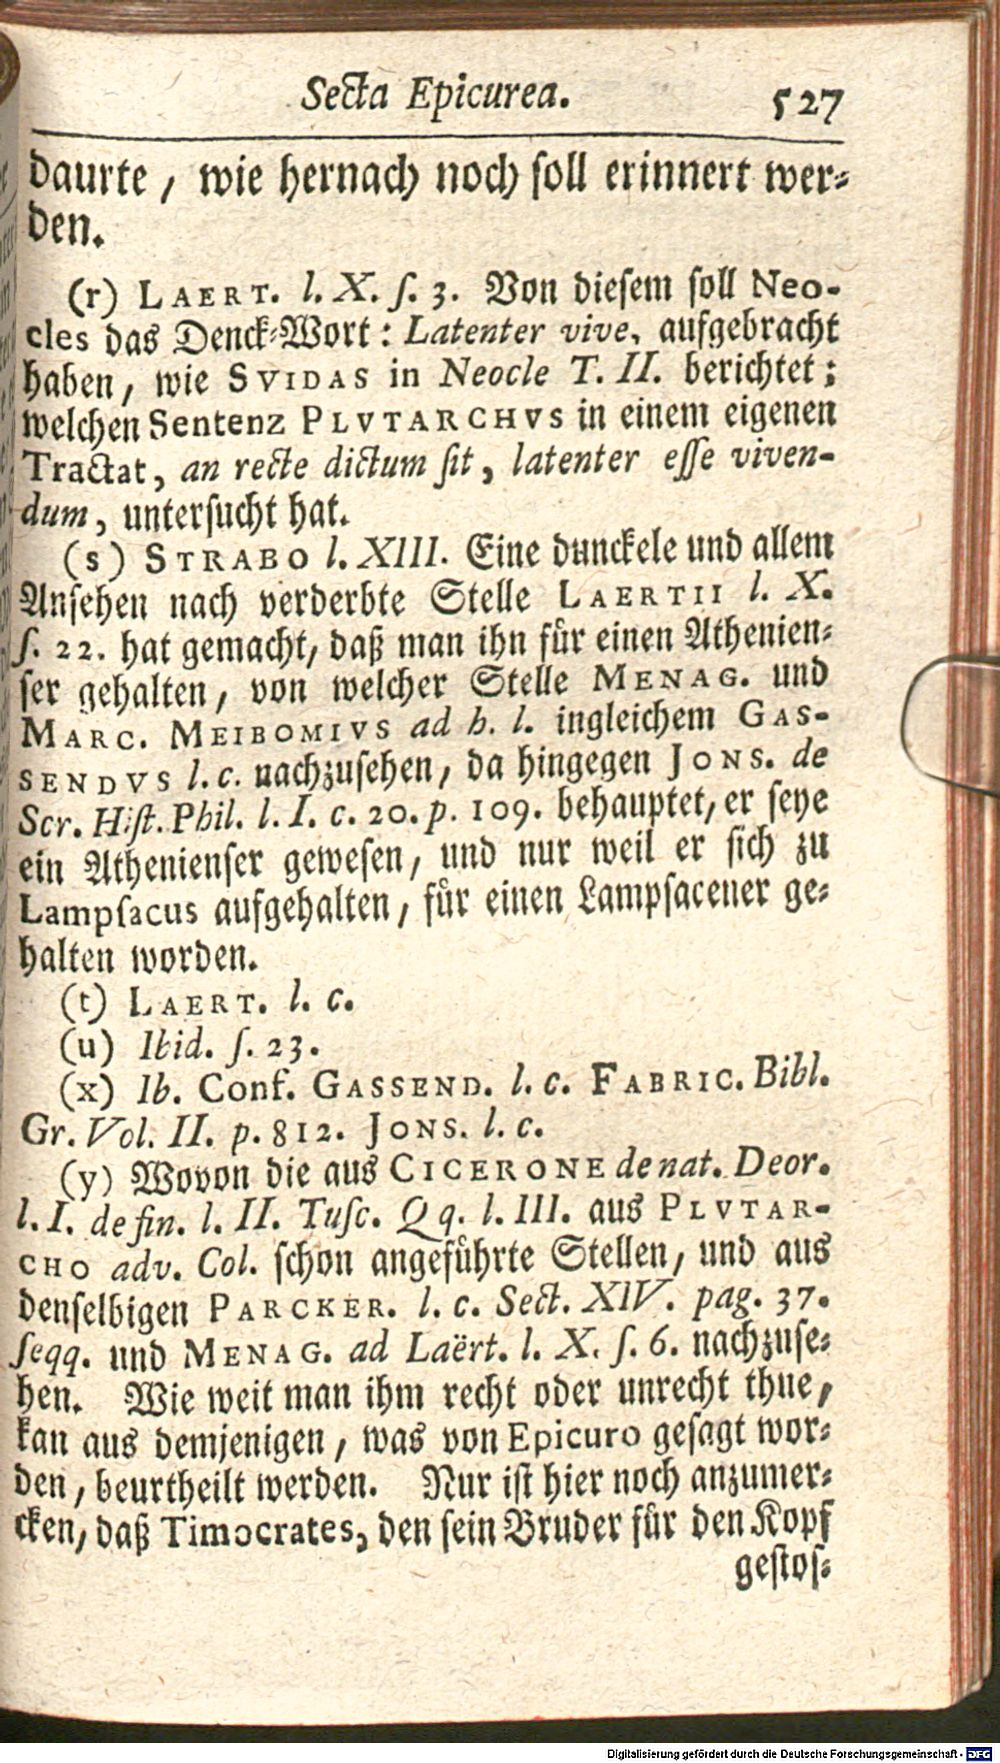 Secta Epicurea. 527
daurte, wie hernach noch soll erinnert wer-
den.
(r) LAERT. l. X. s. 3. Von diesem soll Neo-
cles das Denck-Wort: Latenter vive, aufgebracht
haben, wie SVIDAS in Neocle T. II. berichtet;
welchen Sentenz PLVTARCHVS in einem eigenen
Tractat, an recte dictum sit, latenter esse viven-
dum, untersucht hat.
(s) STRABO l. XIII. Eine dunckele und allem
Ansehen nach verderbte Stelle LAERTII l. X.
s. 22. hat gemacht, daß man ihn für einen Athenien-
ser gehalten, von welcher Stelle MENAG. und
MARC. MEIBOMIVS ad h. l. ingleichem GAS-
SENDVS l. c. nachzusehen, da hingegen JONS. de
Scr. Hist. Phil. l. I. c. 20. p. 109. behauptet, er seye
ein Athenienser gewesen, und nur weil er sich zu
Lampsacus aufgehalten, für einen Lampsacener ge-
halten worden.
(t) LAERT. l. c.
(u) Ibid. s. 23.
(x) Ib. Conf. GASSEND. l. c. FABRIC. Bibl.
Gr. Vol. II. p. 812. JONS. l. c.
(y) Wovon die aus CICERONE de nat. Deor.
l. I. de fin. l. II. Tusc. Qq. l. III. aus PLVTAR-
CHO adv. Col. schon angeführte Stellen, und aus
denselbigen PARCKER. l. c. Sect. XIV. pag. 37.
seqq. und MENAG. ad Laërt. l. X. s. 6. nachzuse-
hen. Wie weit man ihm recht oder unrecht thue,
kan aus demjenigen, was von Epicuro gesagt wor-
den, beurtheilt werden. Nur ist hier noch anzumer-
cken, daß Timocrates, den sein Bruder für den Kopf
gestos-
Digitalisierung gefördert durch die Deutsche Forschungsgemeinschaft - DFG